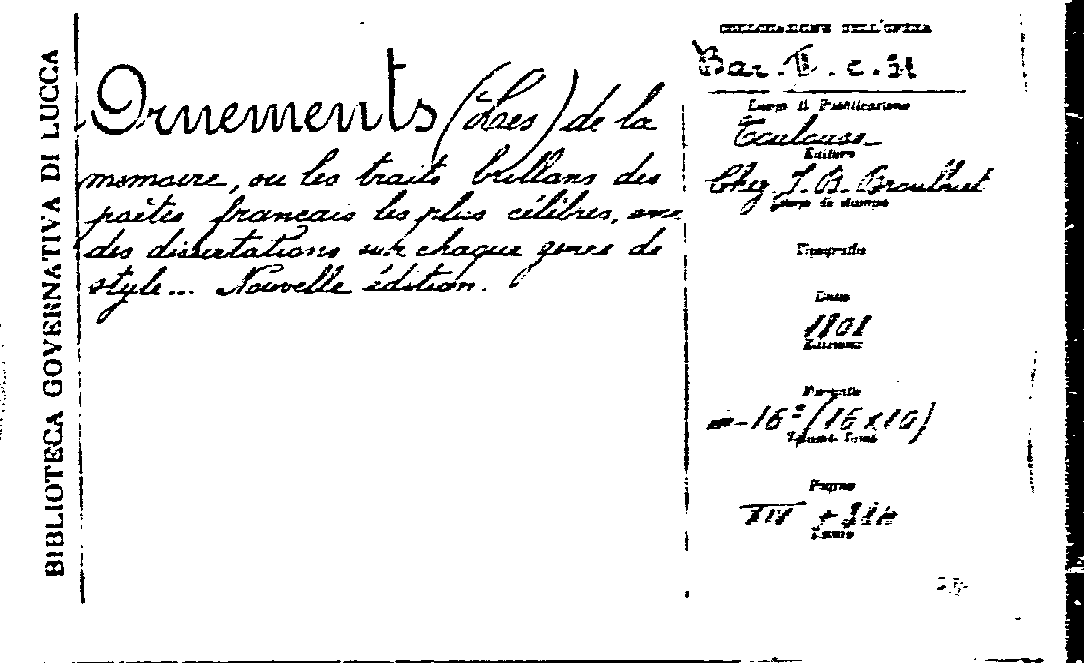 BIBLIOTECA GOVERNATIVA DI LUCCA
Ornements (Les) de la
memoire, ou les traits brillans des
poëtes français les plus célèbres, avec
des dissertations sur chaque genre de
style... Nouvelle édition.
COLLOCAZIONE DELL'OPERA
Bar. II. c.
Luogo di Pubblicazione
Toulouse
Editore
Chez J. B. Broulhiet
Luogo di stampa
Tipografia
Data
Edizione
Formato
in-16º (16 x 10)
Pagine
XIV +